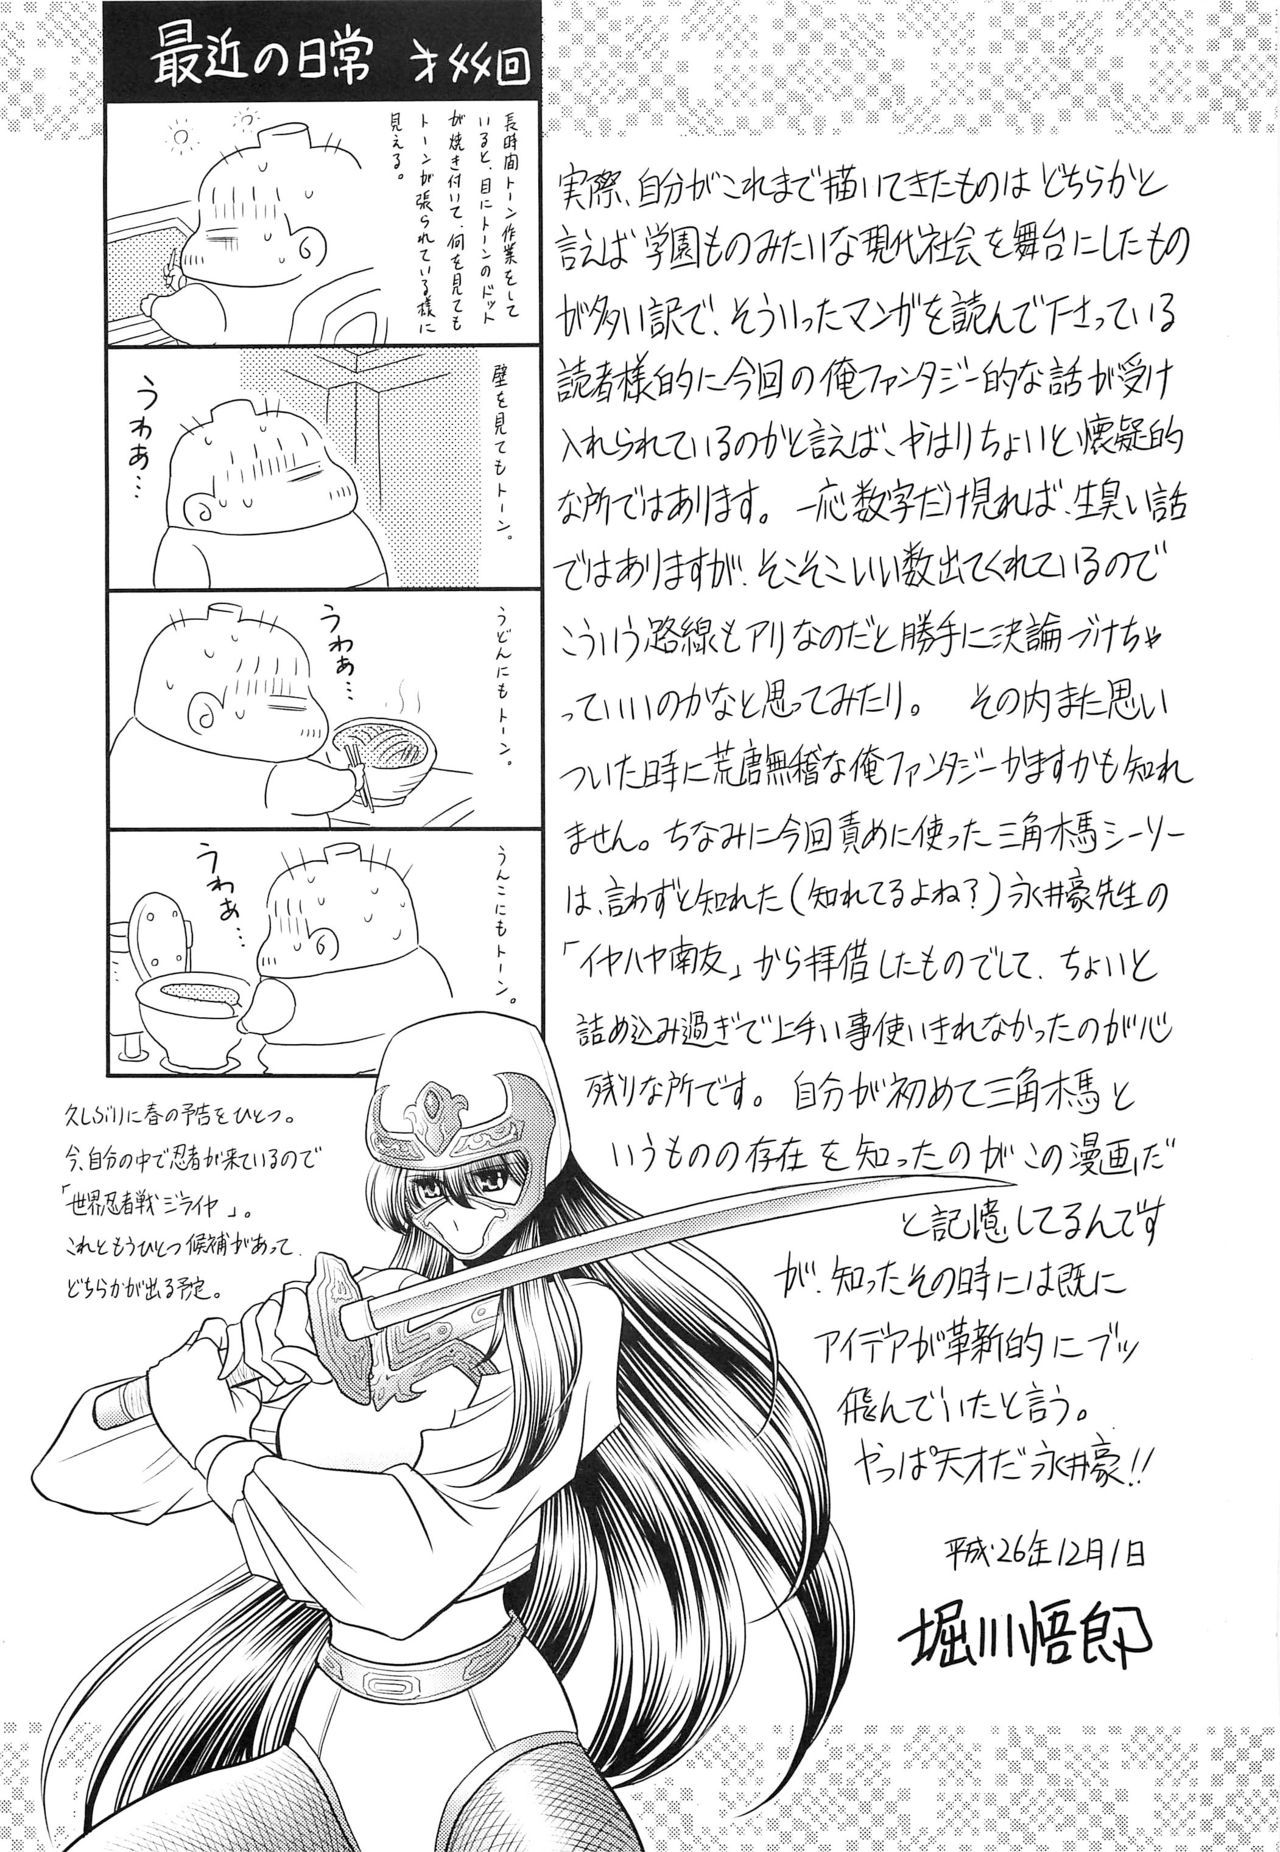 最近の日常 オ〆〆回
長時間トーン作業をして
いると、目にトーンのドット
が焼き付いて、何を見ても
トーンが張られている様に
見える。
壁を見てもトーン。
うわぁ…
うどんにもトーン。
うわぁ…
うんこにもトーン。
うわぁ…
実際、自分がこれまで描いてきたものは どちらかと
言えば 学園ものみたいな現代社会を舞台にしたもの
が多い訳で、そういったマンガを読んで下さっている
読者様的に今回の俺ファンタジー的な話が受け
入れられているのかと言えば、やはりちょいと懐疑的
な所ではあります。一応数字だけ見れば、生臭い話
ではありますが、そこそこいい数出てくれているので
こういう路線もアリなのだと勝手に決論づけちゃ
っていいのかなと思ってみたり。 その内また思い
ついた時に荒唐無稽な俺ファンタジーかますかも知れ
ません。ちなみに今回責めに使った三角木馬シーソー
は、言わずと知れた(知れてるよね?)永井豪先生の
「イヤハヤ南友」から拝借したものでして、ちょいと
詰め込み過ぎで上手い事使いきれなかったのが心
残りな所です。 自分が初めて三角木馬と
いうものの存在を知ったのがこの漫画だ
と記憶してるんです
が、知ったその時には既に
アイデアが革新的にブッ
飛んでいたと言う。
やっぱ天才だ永井豪!!
平成・26年12月1日
堀川悟郎
久しぶりに春の予告をひとつ。
今、自分の中で忍者が来ているので
「世界忍者戦ジライヤ」。
これともうひとつ候補があって、
どちらかが出る予定。